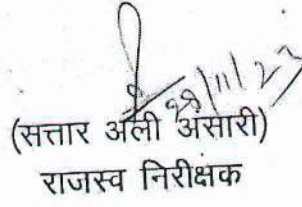 28/11/23
(सत्तार अली अंसारी)
राजस्व निरीक्षक